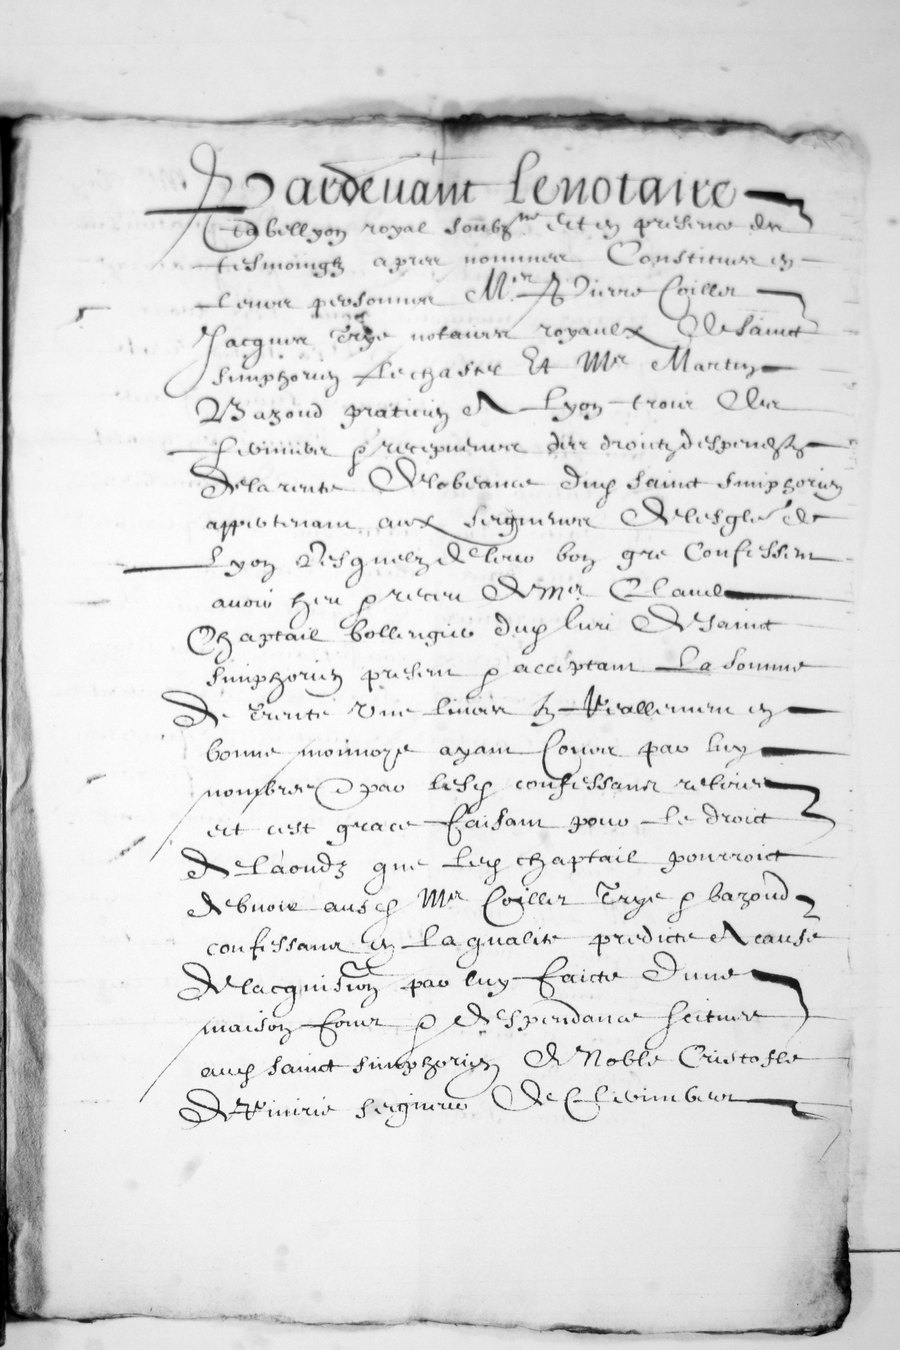 Pardevant Le notaire
Tabellyon royal soubz.ne et en presence des
tesmoingz apres nommes Constitues en
leurs personnes Mes Pierre Coillet
Jacques Trye notaires royaulx de sainct
simphorien le chastel Et Mre Martin
Bazoud praticien A Lyon trois des
fermiers & recepveurs des droictz despendans
de la rente de lobeance dud sainct simphorien
appartenant aux seigneurs de lesglize de
Lyon Lesquelz de leur bon gre Confessent
avoir heu & receu de mre Claude
Chaptail bollengier dud lieu de sainct
simphorien present & acceptant La somme
de trente une livres tz reallement en
bonne monnoye ayant Cours par luy
nombree & par lesd confessans retiree
et c'est grace faisant pour le droict
de laoudz que led chaptail pourroict
debvoir ausd Mes Coillet Trye & bazoud
confessans en la qualite predicte A cause
de lacquisition par luy faicte dune
maison four & despendance scituee
aud sainct simphorien de Noble Cristofle
de seigneur de